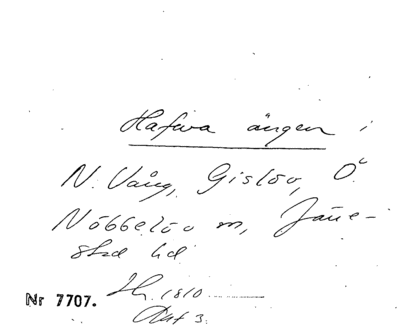 Hafwa ängen i
N. Vång, Gislöv, Ö.
Nöbbelöv sn, Järre-
stad hd
Nr 7707. Sk. 1810
Akt 3.